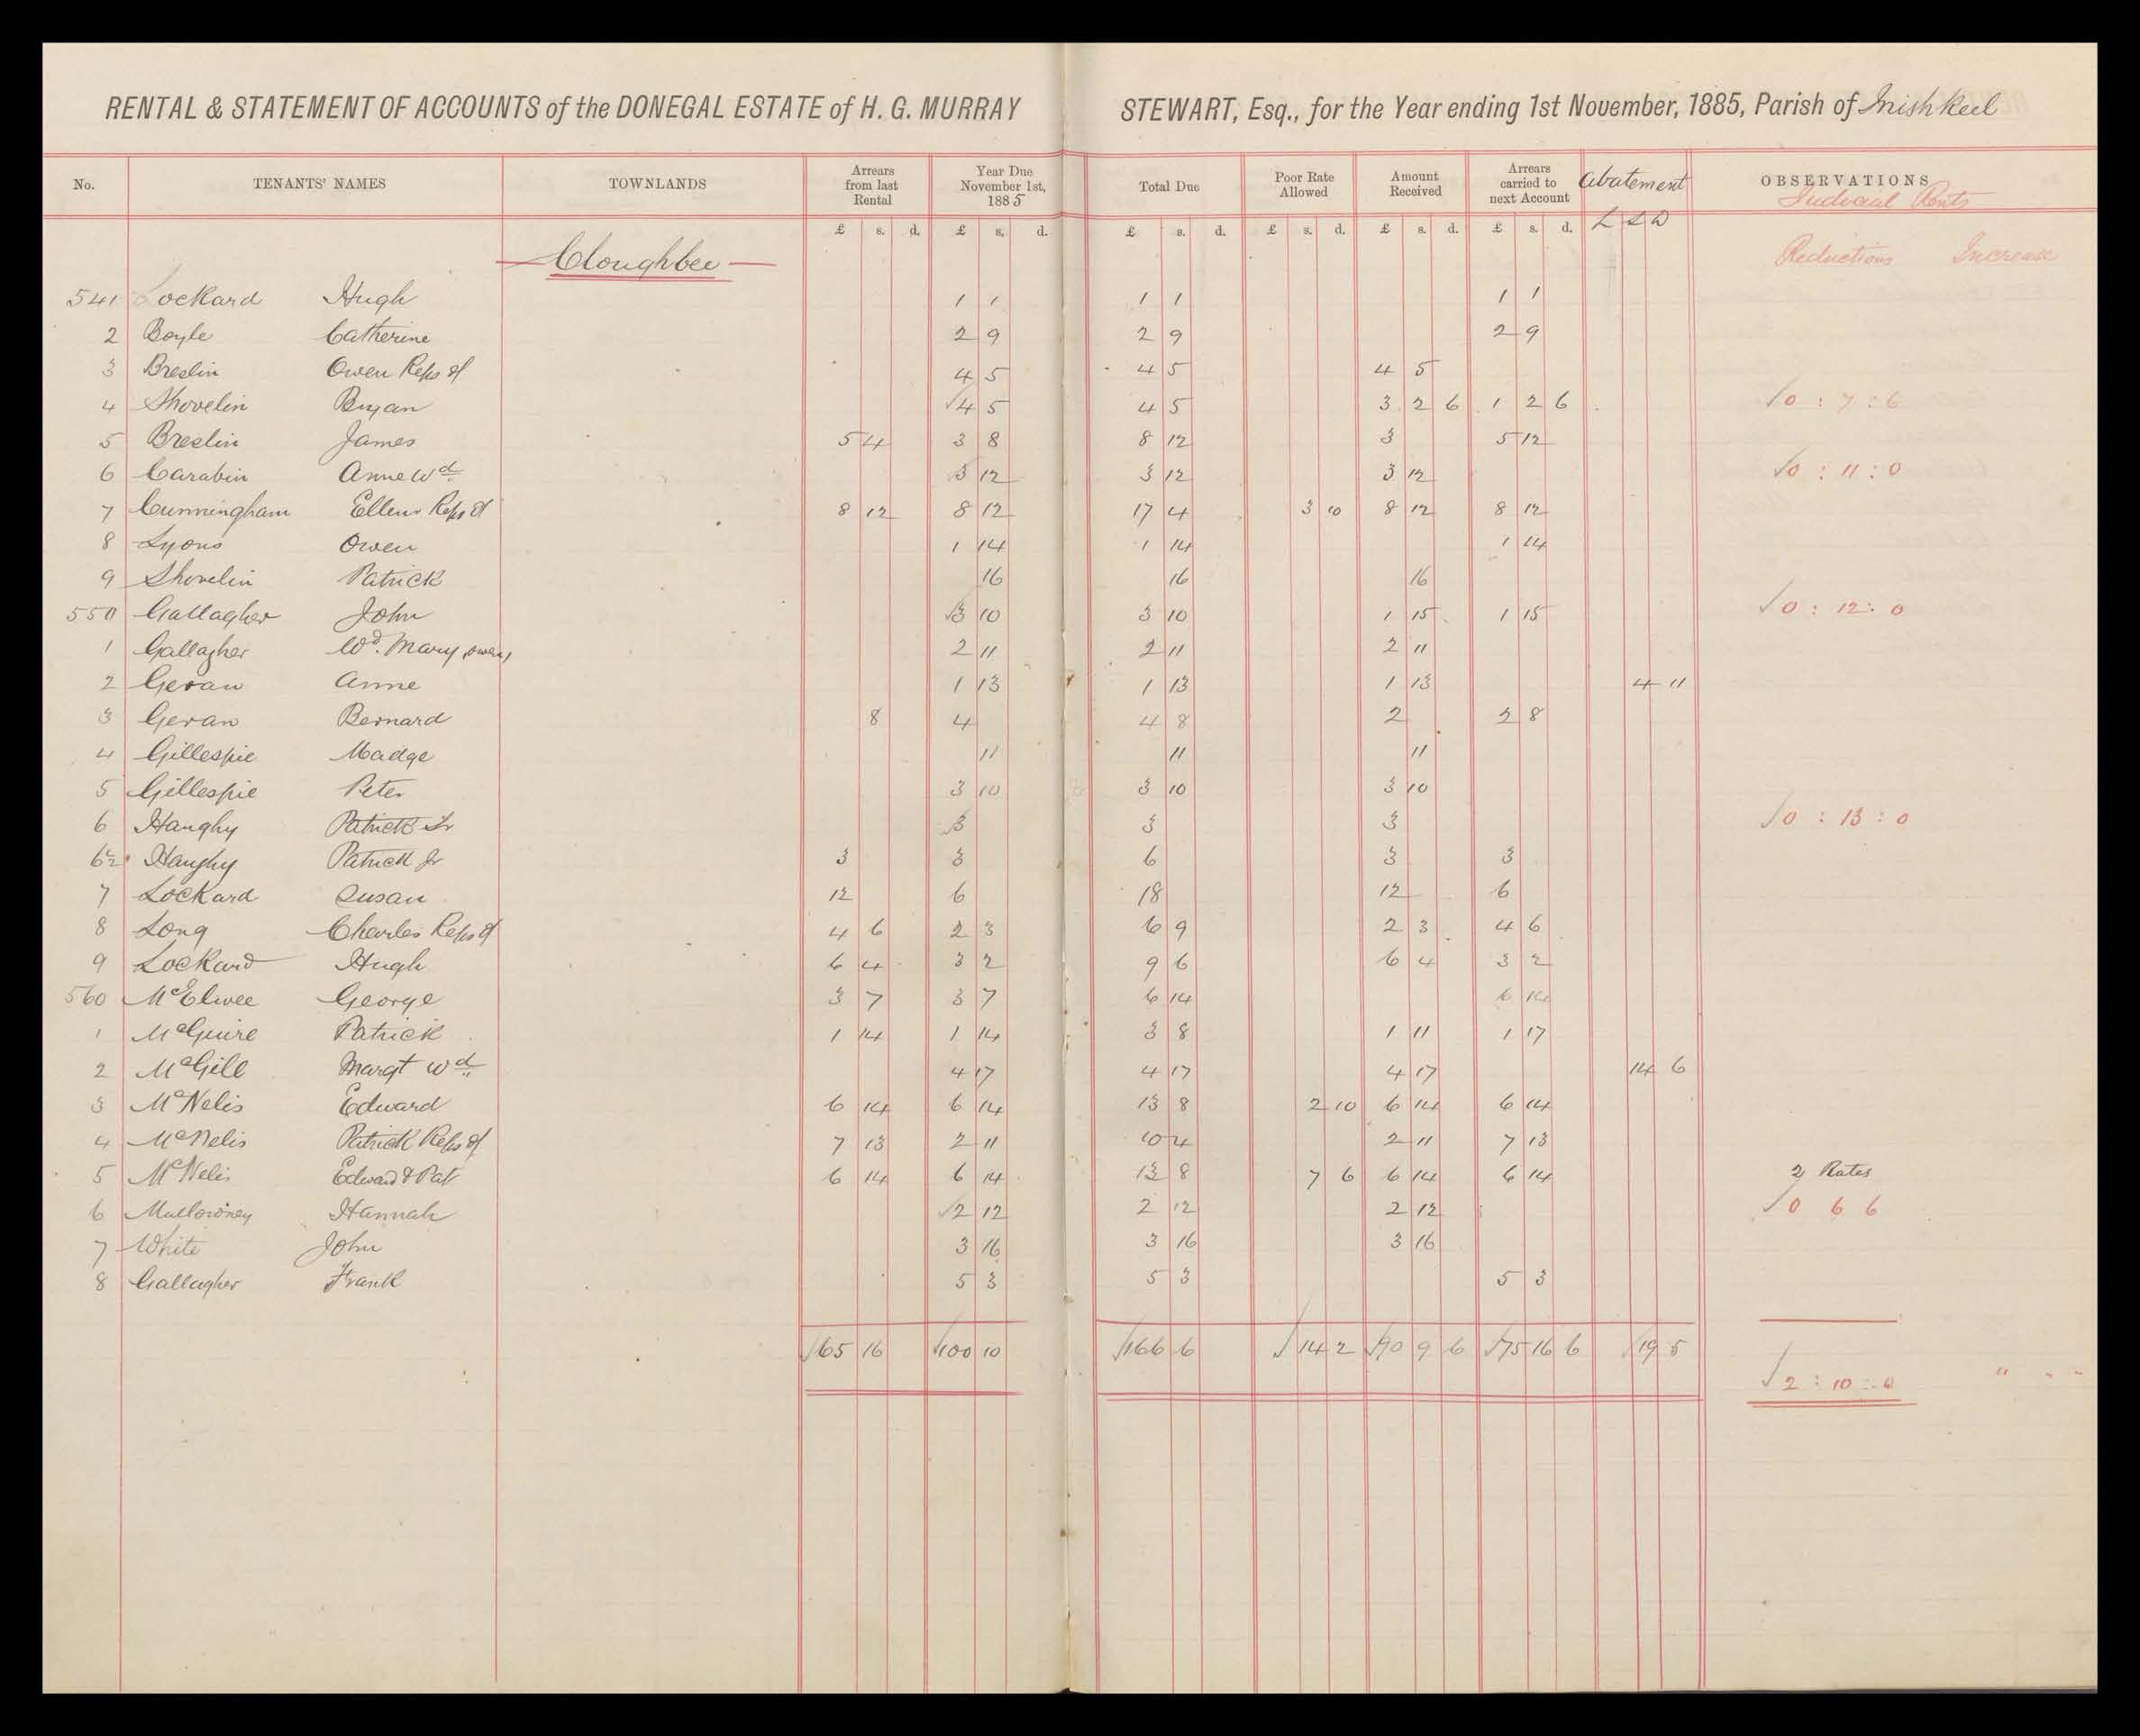 RENTAL & STATEMENT OF ACCOUNTS of the DONEGAL ESTATE of H. G. MURRAY STEWART, Esq., for the Year ending 1st November, 1885, Parish of Inishkeel
No. TENANTS' NAMES TOWNLANDS Arrears from last Rental Year Due November 1st, 1885 Total Due Poor Rate Allowed Amount Received Arrears carried to next Account Abatement OBSERVATIONS
Judicial Rents
£ s. d. £ s. d. £ s. d. £ s. d. £ s. d. £ s. d. L S D
Cloughbee Reductions Increase
541 Lockard Hugh 1 1 1 1 1 1
2 Boyle Catherine 2 9 2 9 2 9
3 Breslin Owen Reps of 4 5 4 5 4 5
4 Shovelin Bryan √4 5 4 5 3 2 6 1 2 6 √0 : 7 : 6
5 Breslin James 5 4 3 8 8 12 3 5 12
6 Carabin Anne Wd. √3 12 3 12 3 12 √0 : 11 : 0
7 Cunningham Ellen Reps of 8 12 8 12 17 4 3 10 8 12 8 12
8 Lyons Owen 1 14 1 14 1 14
9 Shovelin Patrick 16 16 16
550 Gallagher John √3 10 3 10 1 15 1 15 √0 : 12 : 0
1 Gallagher Wd. Mary, owen, 2 11 2 11 2 11
2 Geran Anne 1 13 1 13 1 13 4 11
3 Geran Bernard 8 4 4 8 2 2 8
4 Gillespie Madge 11 11 11
5 Gillespie Peter 3 10 3 10 3 10
6 Hanghy Patrick Sr √3 3 3 √0 : 13 : 0
6½ Haughy Patrick Jr 3 3 6 3 3
7 Lockard Susan 12 6 18 12 6
8 Long Charles Reps of 4 6 2 3 6 9 2 3 4 6
9 Lockard Hugh 6 4 3 2 9 6 6 4 3 2
560 McElwee George 3 7 3 7 6 14 6 14
1 McGuire Patrick 1 14 1 14 3 8 1 11 1 17
2 McGill Margt Wd. 4 17 4 17 4 17 14 6
3 McNelis Edward 6 14 6 14 13 8 2 10 6 14 6 14
4 McNelis Patrick Reps of 7 13 2 11 10 4 2 11 7 13
5 McNelis Edward & Pat 6 14 6 14 13 8 7 6 6 14 6 14 2 Rates
6 Mullowney Hannah √2 12 2 12 2 12 √0 6 6
7 White John 3 16 3 16 3 16
8 Gallagher Frank 5 3 5 3 5 3
√65 16 √100 10 √166 6 √14 2 √90 9 6 √75 16 6 √19 5
√2 : 10 : 0 " " "